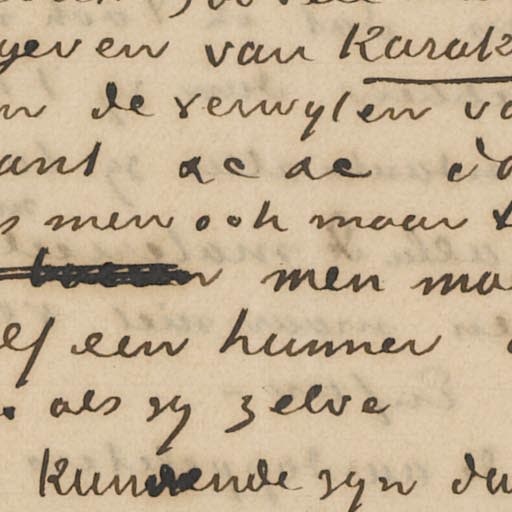 geven van Karak
n de verwyten vo
ant &c &c do
s men ook maar
men moe
elf een hunner
. als zy zelve
Kunnende zyn da